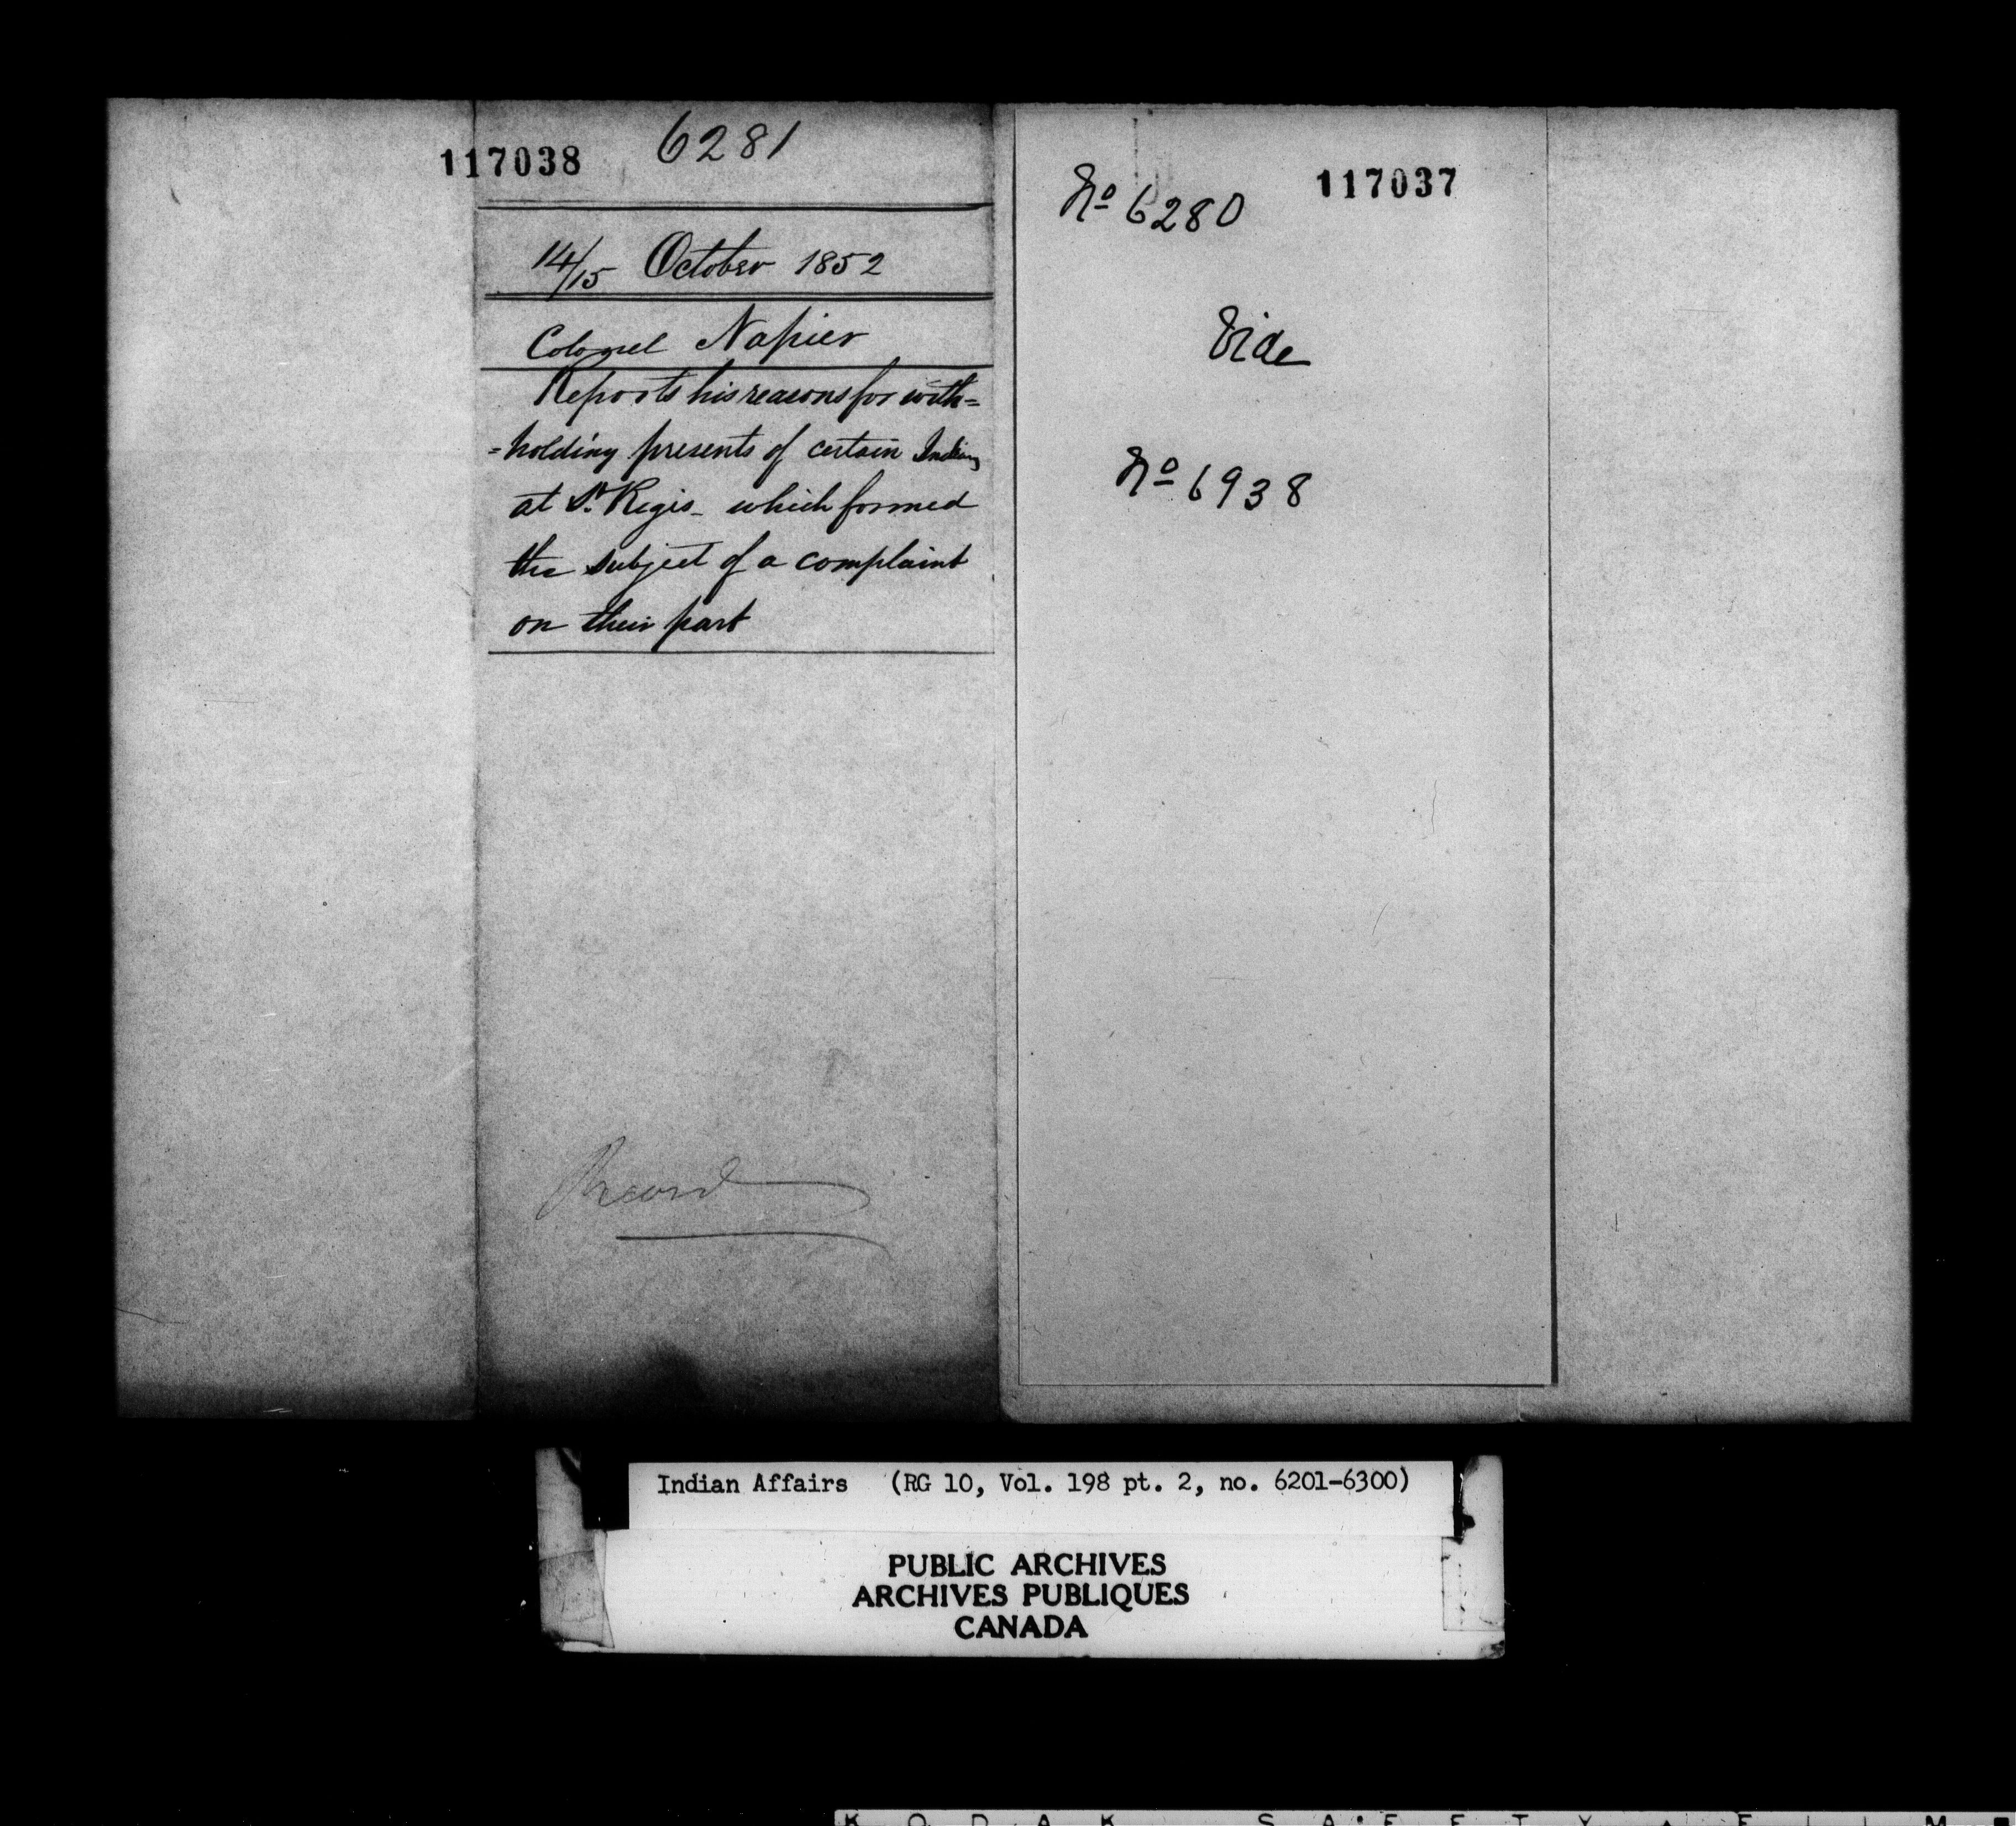 117038
6281
14/15 October 1852
Colonel Napier
Reports his reasons for with=
=holding presents of certain Indians
at St. Regis – which formed
the subject of a complaint
on their part
Record
No 6280
117037
Vide
No 6938
Indian Affairs (RG 10, Vol. 198 pt. 2, no. 6201-6300)
PUBLIC ARCHIVES
ARCHIVES PUBLIQUES
CANADA
KODAK SAFETY FILM